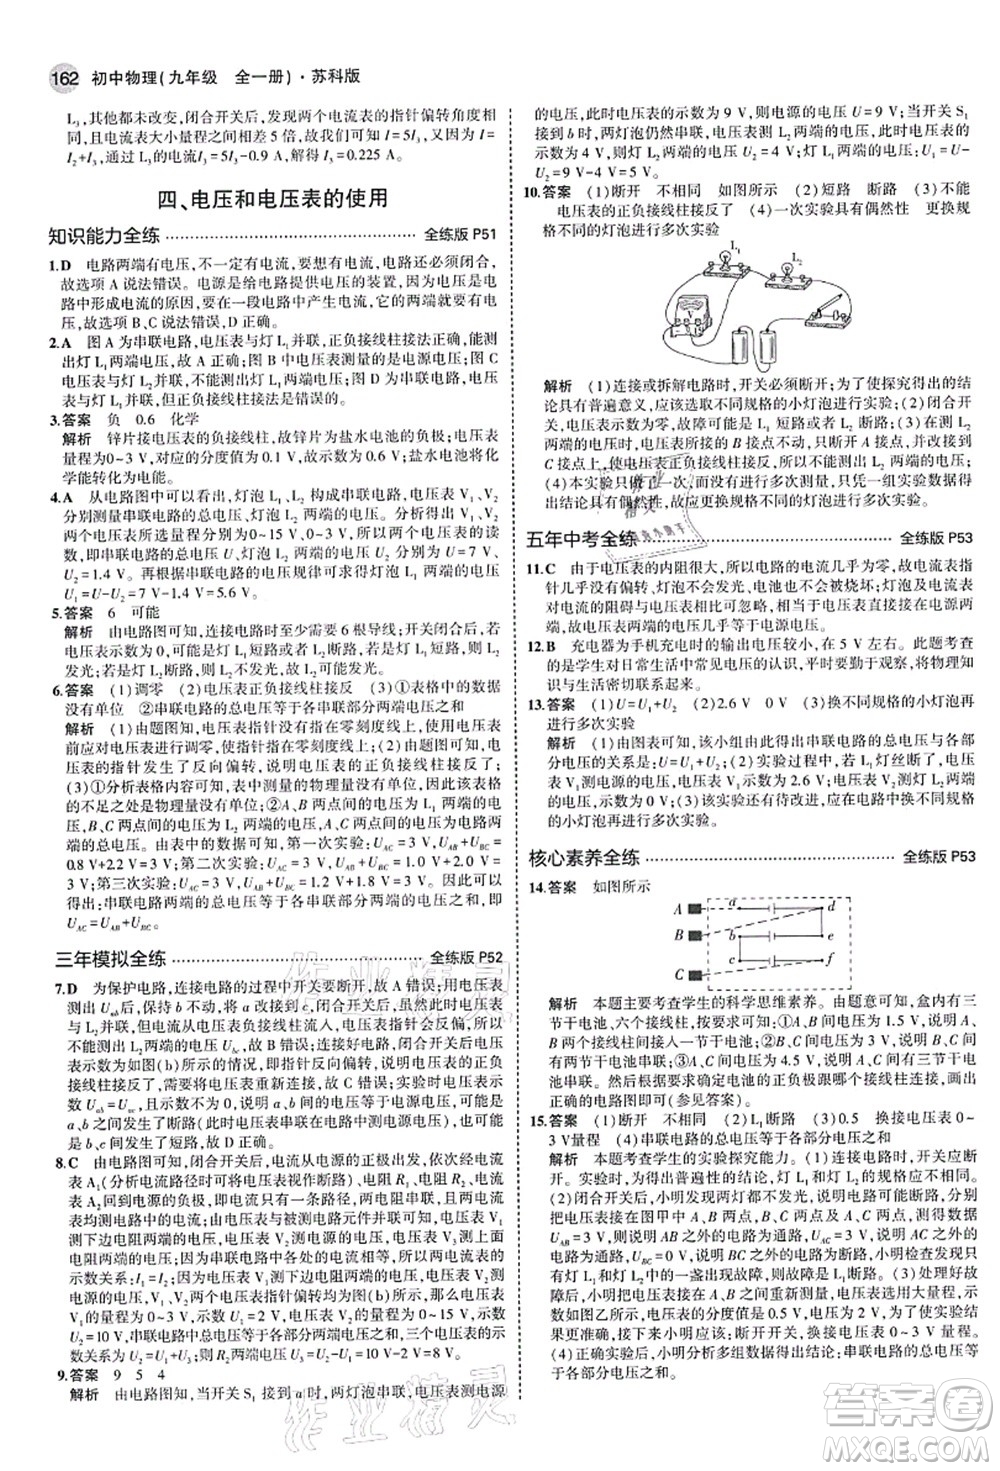 162 初中物理(九年级 全一册)·苏科版
L₃,其他都未改变,闭合开关后,发现两个电流表的指针偏转角度相
同,且电流表大小量程之间相差 5 倍,所以 I=5I₃,又因为 I=
I₂+I₃,通过 L₃的电流I₃=5I₃-0.9 A,解得 I₃=0.225 A。
四、电压和电压表的使用
知识能力全练 全练版 P51
1.D 电路两端有电压,不一定有电流,电路还必须闭合,
故选项 A 说法错误。电源是给电路提供电压的装置,电压是电
路中形成电流的原因,要在一段电路中产生电流,它的两端就要有
电压,故选项 B、C 说法错误,D 正确。
2.A 图 A 是串联电路,电压表与灯 L₁并联,正负接线柱接法正确,能测
出灯 L₁两端电压,故 A 正确;图 B 中电压表测量的是电源电压,
故 B 错误;图 C 中电压表与灯 L₂并联,不能测出灯 L₁两端电压,
故 C 错误;图 D 中电压表与灯 L₁并联,但正负接线柱接法是错误的。
3.答案 负 0.6 化学
解析 锌片接电压表的负接线柱,故锌片为盐水电池的负极;电压表的
量程为0~3 V,对应的分度值为0.1 V,故示数为 0.6 V;盐水电池将化
学能转化为电能。
4.A 从电路图中可以看出,灯泡 L₁、L₂构成串联电路,电压表 V₁、V₂
分别测量串联电路的总电压、灯泡 L₂两端的电压。由于 V₁、V₂
两个电压表的量程分别为0~15 V、0~3 V,结合题图乙中电压表的读
数,可知串联电路的总电压 U=7 V、灯泡 L₂两端的电压
U₂=1.4 V。再根据串联电路的电压规律可知,灯泡 L₁两端的电压
U₁=U-U₂=7 V-1.4 V=5.6 V。
5.答案 6 可能
解析 由电路图可知,连接电路时至少需要 6 根导线;开关闭合后,若
电压表示数为0,可能是灯 L₁短路或者灯 L₂断路,若灯 L₁短路,灯 L₂
发光;若灯 L₂断路,灯 L₂不发光,故灯 L₂可能发光。
6.答案 (1)调零 (2)电压表正负接线柱接反 (3)①表格中的数据
没有单位 ②串联电路的总电压等于各部分两端电压之和
解析 (1)由题图知,电压表指针没有在零刻度线上,使用电压表
前应对电压表进行调零,使指针指在零刻度线;(2)由题图可知,电
压表的指针发生了反向偏转,说明电压表正负接线柱接反了;
(3)①分析表格数据可知,表格中测量的物理量没有单位,所以
不足之处是物理量没有单位;②A、B 两点间的电压为 L₁两端的电
压,B、C 两点间的电压为 L₂两端的电压,A、C 两点间的电压为灯 L₁
和灯 L₂串联后的总电压。第一次实验:U_AC=2.2 V,U_AB+U_BC=1.4 V+
0.8 V=2.2 V;第二次实验:U_AC=3 V,U_AB+U_BC=1.2 V+1.8 V=3 V;
第三次实验,U_AC=3 V,U_AB+U_BC=1.3 V+1.7 V=3 V。分析三次实验数
据可得,串联电路两端的总电压等于各串联部分两端电压之和,即
U_AC=U_AB+U_BC。
三年模拟全练 全练版 P52
7.D 为保护电路,连接电路的过程中开关要断开,故 A 错误;用电压表
测出 U_ab后,保持 b 不动,将 a 接线改接到c,会使电流从电压表负接线
柱流入,正接线柱流出,不能测出电压U_bc,故 B 错误;测电压U_ac时,电
压表示数为如图(b)所示的情况,即指针反向偏转,说明电压表的正负
接线柱接反了,应将电压表重新连接,故 C 错误;测电压U_bc时,电压表
示数 U_ab与U_ac相等,示数均为如图(b)所示的情况,说明
a、c之间有电压,此时电压表串联在电路中测电源电压,可能是
a、b之间发生了短路,故 D 正确。
8.C 由电路图可知,闭合开关后,电流从电源的正极出发,依次经过电流表
A₁(分析电流路径时可将电压表当断路处理),电阻 R₁、电阻 R₂、电流表
A₂回到电源的负极,没有分支,因此该电路为串联电路,电流表均串联在
电路中测串联电路的电流;电压表V₁并联在电阻 R₁、R₂两端,测电阻R₁、R₂
两端的总电压,即电源电压;电压表V₂并联在电阻 R₂两端,测电阻 R₂两端的电
压。由于串联电路中电流处处相等,所以两个电流表
示数关系:I₁=I₂;由于电压表 V₁测总电压,电压表 V₂测部
分电压,两个电压表的指针偏转相同,所以电压表 V₁的量程为 0~15 V,
示数为 U₁=10 V,电压表V₂的量程为 0~3 V,示数为 U₂=2 V,
根据串联电路中总电压等于各部分两端电压之和,两个电压表的
示数关系为 U₁>U₂,R₁两端的电压为10 V-2 V=8 V,故选 C。
9.答案 9 5 4
解析 由电路图知,当开关 S₁接到 a 时,两灯泡串联,电压表测电源
的电压,此时电压表的示数为 9 V,则电源的电压 U=9 V;当开关 S₁
接到 b 时,两灯泡仍然串联,电压表测 L₂两端的电压,此时电压表的
示数为 4 V,则 L₂两端的电压U₂=4 V,L₁两端的电压 U₁=
U-U₂=9 V-4 V=5 V。
10.答案 (1)断开 不相同 如图所示 (2)短路 断路 (3)不能
电压表的正负接线柱接反了 (4)一次实验具有偶然性 更换规
格不同的灯泡进行多次实验
L₁
L₂
解析 (1)连接或拆解电路时,开关必须断开;为使探究得出的结
论具有普遍意义,应该选取不同规格的小灯泡进行实验;(2)闭合开
关,灯泡都不亮,电压表无示数,故障可能是 L₁短路或者 L₂断路;(3)测 L₂
两端的电压时,电压表所接的 B 接点不动,只断开 A
接点,并改接到 C 接点上,电压表的正负接线柱就接反了;
(4)本实验只做了一次,实验次数太少,具有偶然性,为避免偶然性使
得出结论具有普遍性,应换用不同规格的灯泡进行多次实验。
五年中考全练 全练版 P53
11.C 由于电压表的内阻很大,所以电路中的电流几乎为零,故电流表指
针几乎没有偏转,灯泡不会发光,电池也不会被烧坏;灯泡和电流表
对电流的阻碍与电压表相比可忽略不计,电压表直接接在电源两
端,故电压表两端的电压几乎等于电源电压。
12.B 充电器为手机充电时的输出电压较小,在 5 V 左右。此题考查的
是对日常生活中常见电压的认识,平时要勤于观察,将物理知
识与生活密切联系起来。
13.答案 (1)U=U₁+U₂ (2)2.6 V 0 V (3)换不同规格的小灯泡再
进行多次实验
解析 (1)由题表可知,该小组由此得出串联电路的总电压与各部
分电压的关系为 U=U₁+U₂。(2)实验过程中,若 L₁灯丝断了,此时
电压表 V₁测电源的电压,其示数约为 2.6 V;电压表 V₂无
示数,为 0 V。(3)该实验还有待改进,应在电路中换用不同规格
的小灯泡再进行多次实验。
核心素养全练 全练版 P53
14.答案 如图所示
A a d
B b e
C c f
解析 本题主要考查学生的科学思维素养。由题意可知,内有三
节干电池、六个接线柱。①A、B 两个接线柱之间的电压为 1.5 V,即一
个接线柱间接入一节干电池;②B、C 之间的电压为 3 V,即
有两节干电池串联;③A、C 之间的电压为 4.5 V,即三节干电
池串联。然后根据题目要求确定电池的正负极即可画出正确
的电路图即可(参见答案)。
15.答案 (1)断开 不相同 (2)L₁断路 (3)0.5 换接电压表 0~
3 V量程 (4)串联电路的总电压等于各部分电压之和
解析 本题考查学生的实验探究能力。(1)连接电路时,开关应
(2)闭合开关后,小明发现两灯均不发光,于是用电压表分
别把电压表接在图甲中 A、B 之间,B、C 之间,A、C 之间,发现
U_AB=3 V,说明 A、B 之外的电路是通路,U_AC=3 V,说明 A、C 之外的
电路为通路,U_BC=0,说明 B、C 之外的电路断路,综上分析可知,
电路中的一盏灯出现故障,则故障是L₁断路;(3)处理好故障
后,小明把电压表接在 B、C 之间重新测量,闭合开关,电压表
示数如图乙所示,电压表的分度值是 0.5 V,电压为 2 V,为使实验
结果更准确,应选用电压表的 0~3 V 量程进行测量。
(4)正确测出电压后,小明分析数据得出结论:串联电路的总电压等于各部
分电压之和。
作业精灵
答案圈
MXQE.COM